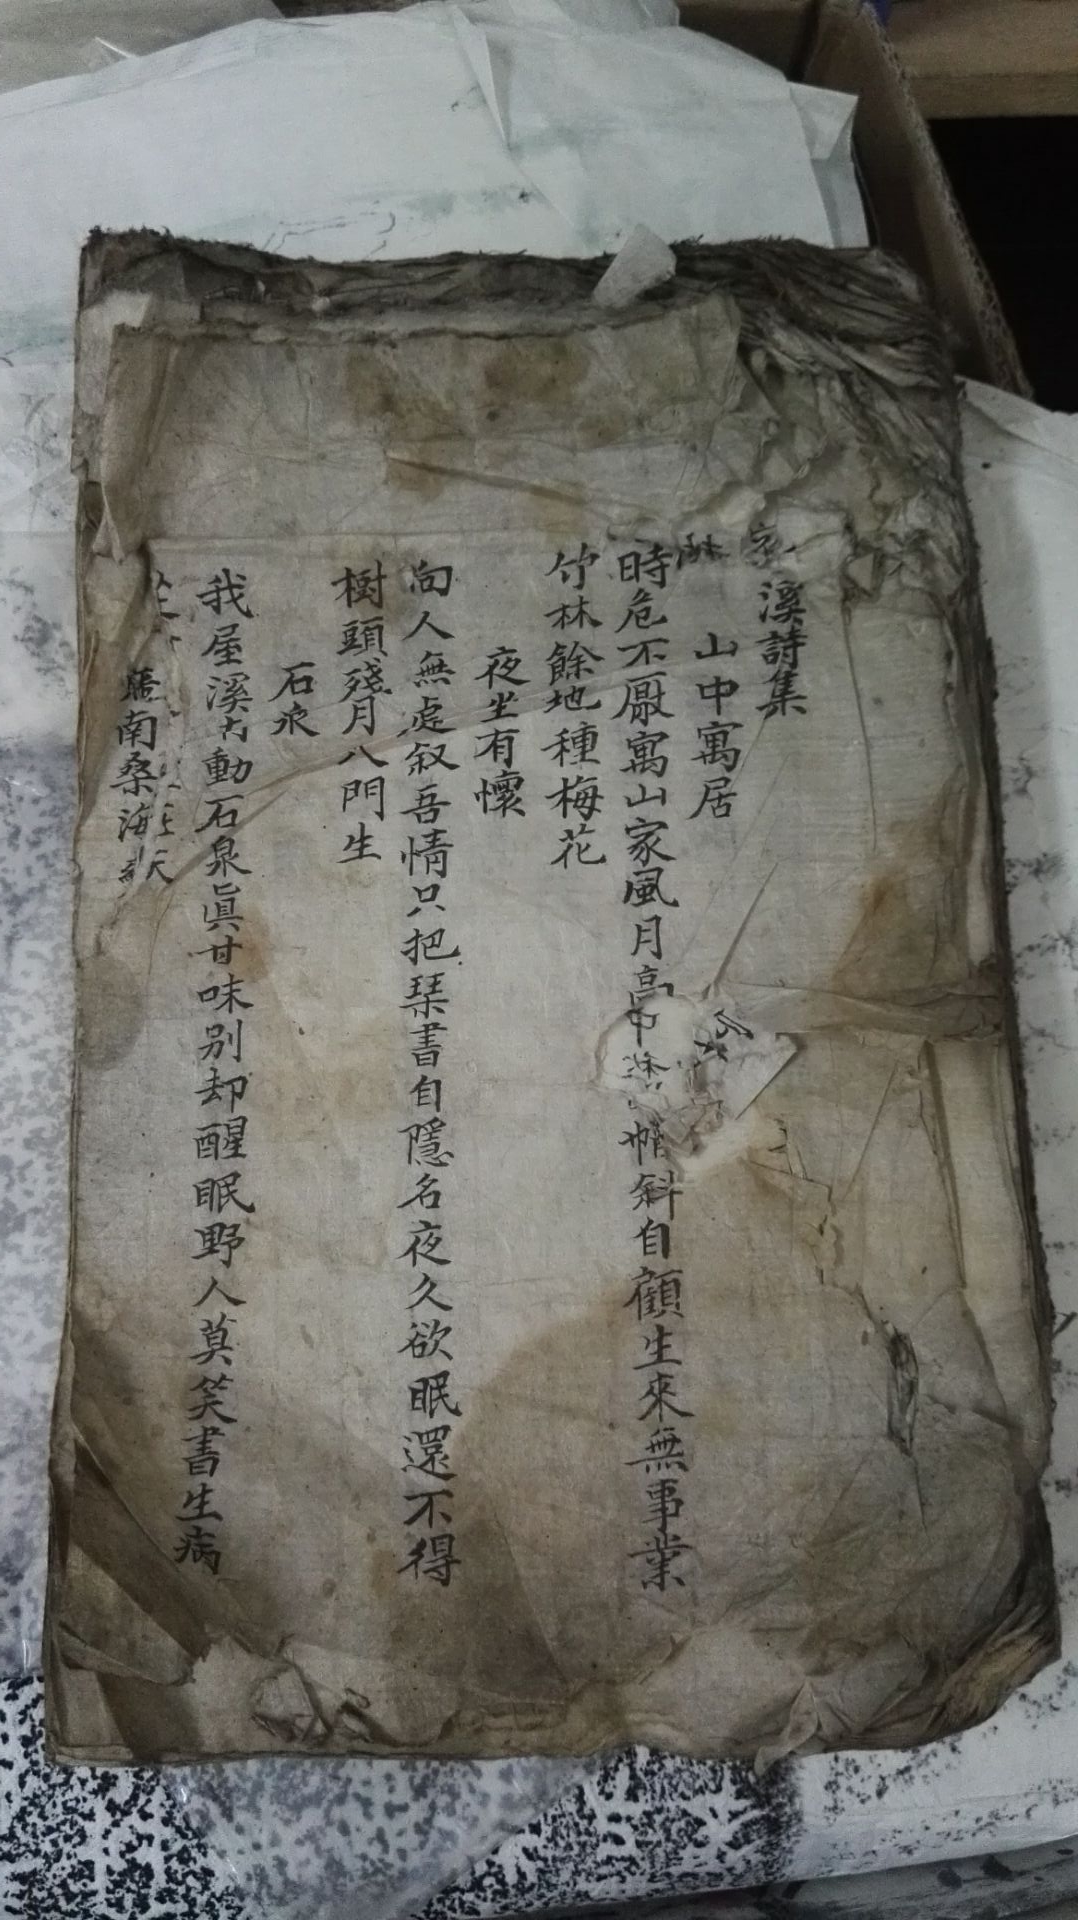 溪詩集
山中寓居
時危不厭寓山家風月高中 帽斜自顧生來無事業
竹林餘地種梅花
夜坐有懷
向人無處叙吾情只把琹書自隱名夜久欲眠還不得
樹頭殘月八門生
石泉
我屋溪古動石泉眞甘味別却醒眠野人莫笑書生病
南桑海